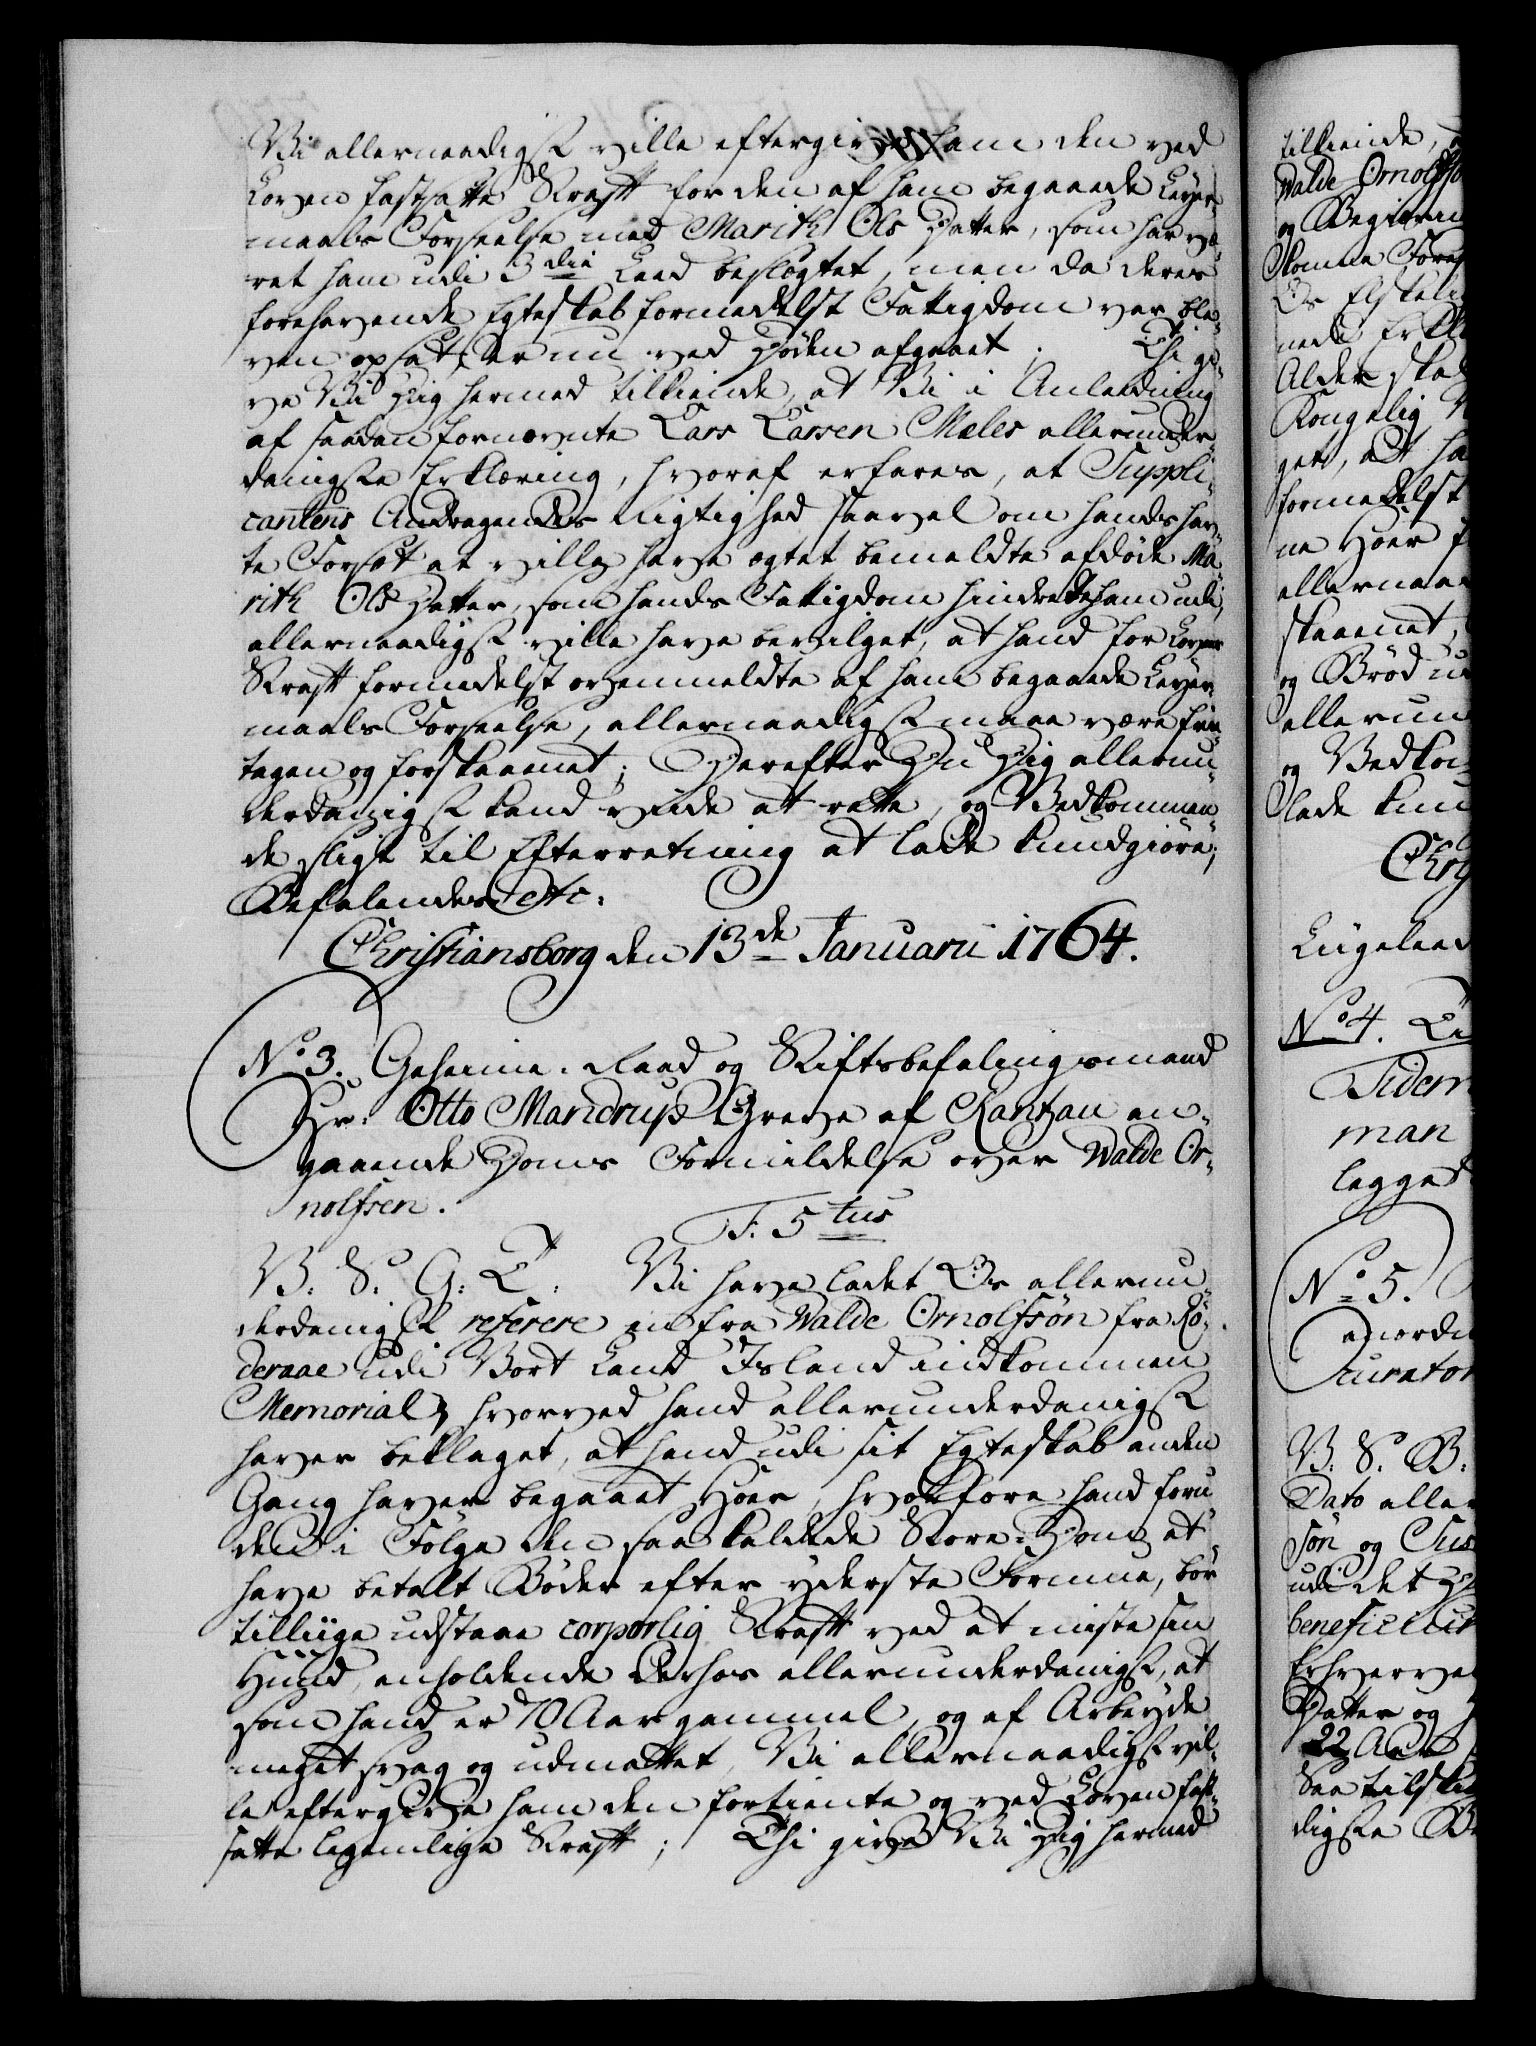 Vi allernaadigst ville eftergive ham den ved
Loven fastsatte Straff for den af ham begaaede Leyer,,
maals Forseelse med Marith Ols Datter, som har væ,,
ret ham udi 3die Leed beslægtet, men da deres
forehavende Egteskab formedelst Fattigdom var ble,,
ven opsat, er nu ved Døden afgaaet; Thi gi,,
ve Vi Dig hermed tilkiende, at Vi i Anleedning
af saadan fornævnte Lars Larsen Mæles allerunder,,
danigste Erklæring, hvoraf erfares, at Suppli,,
cantens Andragendes Rigtighed saavel om hands hav,,
te Forsæt at ville have ægtet bemeldte afdøde Ma,,
rith Ols Datter, som hands Fattigdom hindrede ham udi,
allernaadigst ville have bevilget, at hand for Lovens
Straff formedelst ovenmeldte af ham begaaede Leyer,,
maals Forseelse, allernaadigst maae være frie,,
tagen og forskaanet; Derefter Du Dig allerun,,
derdanigst kand viide at rette, og Vedkommen,,
de sligt til Efterretning at lade kundgiøre;
Befalendes etc:
Christiansborg den 13de Januarii 1764.
No 3. Geheime-Raad og Stiftsbefalingsmand
Hr: Otto Mandrup Greve af Rantzau an-
gaaende Doms Formildelse over Walde Or-
nolfsen.
F: 5tus
V: S: G: T: Vi have ladet Os allerun,,
derdanigst referere en fra Walde Ornolfsøn fra Rø,,
deraae udi Vort Land Island indkommen
Memorial, hvorved hand allerunderdanigst
haver beklaget, at hand udi sit Egteskab anden
Gang haver begaaet Hoer, hvorfore hand foru,,
den i Følge den saa kaldede Store-Dom at
have betalt Bøder efter yderste Formue, bør
tilliige udstaae corporlig Straff ved at miste sin
Hud, anholdende derhos allerunderdanigst, at
som hand er 70 Aar gammel, og af Arbeyde
meget svag og udmattet, Vi allernaadigst vil,,
le eftergive ham den fortiente og ved Loven fast,,
satte legemlige Straff; Thi give Vi Dig hermed
tilkiende,
Walde Ornolfsø
og Begiering
Elskel
Alder skal
Kongelig
get, at ha
formedelst
ne Hoer f
allernaa
skaanet,
og Brød u
allerun
og Vedkom
lade kun
Chr
Liigeleed
No 4.
Tidem
man
legget
No 5.
anordn
curator
V: S: B:
Dato aller
søn og Sus
udi det
beneficium
Erhverve
Datter og
22 Aar
digste B